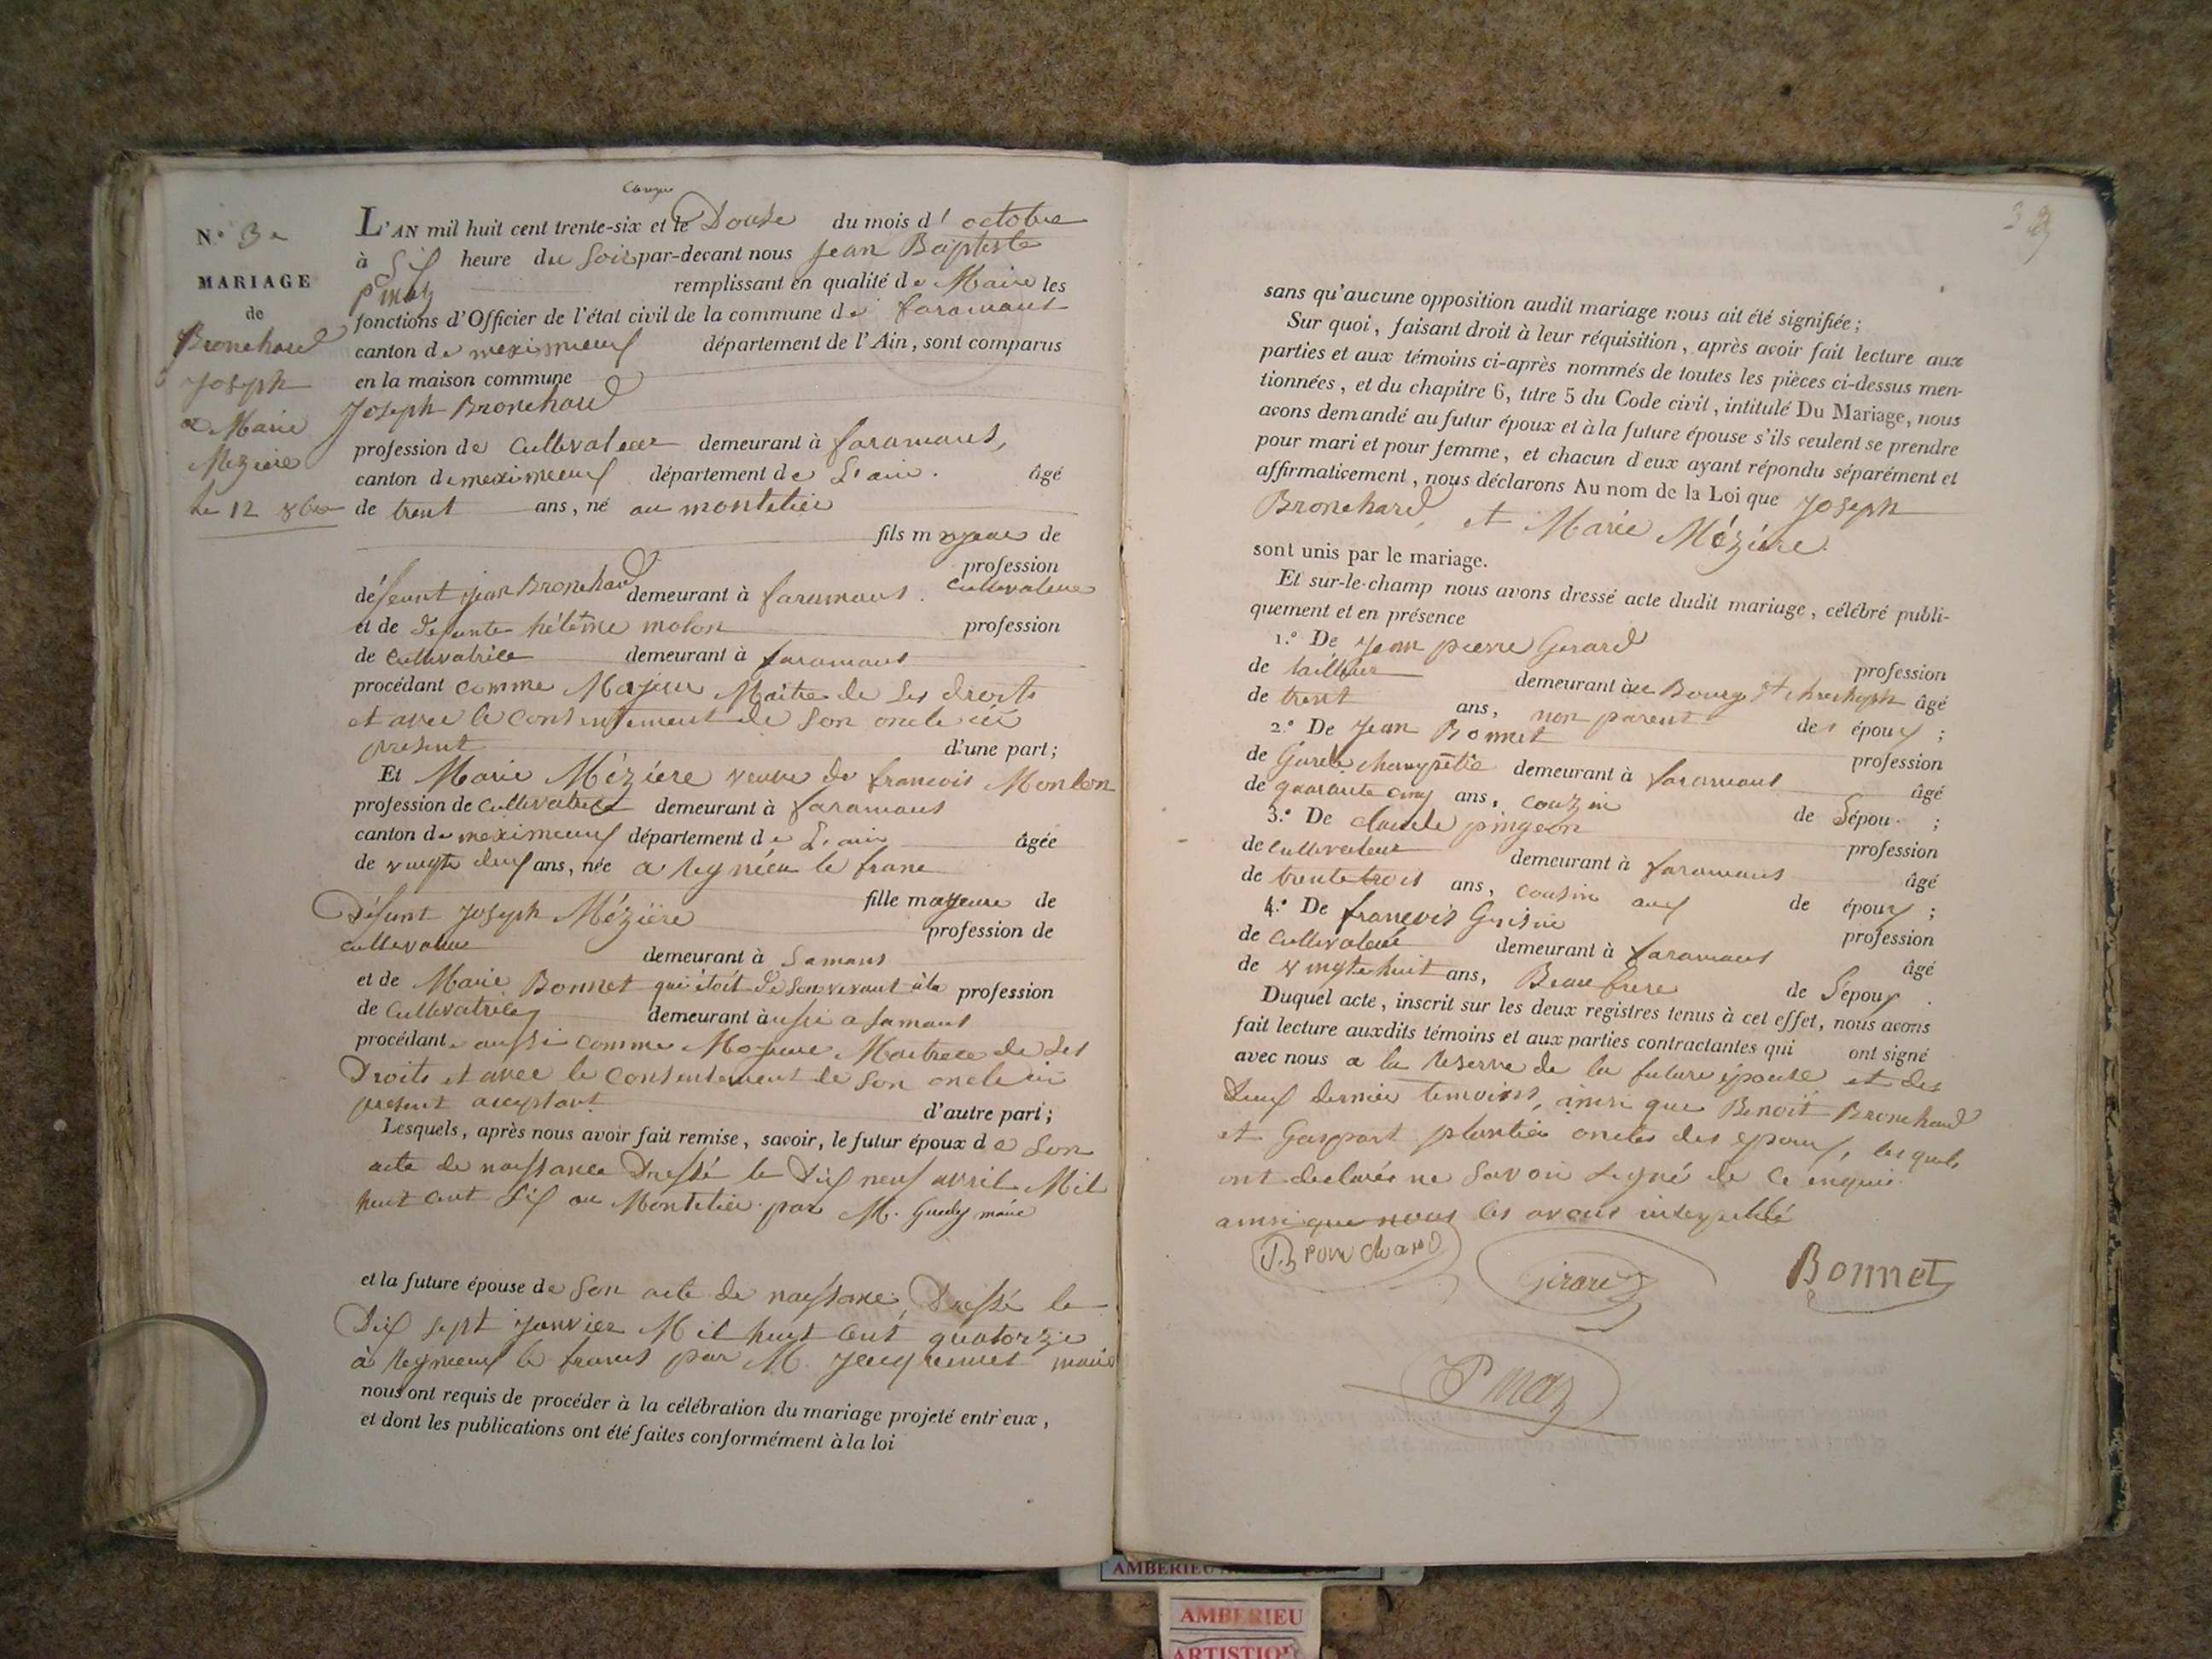 N.º 3e
MARIAGE
de
Bronchard
Joseph
& Marie
Mézière
le 12 8bre
L'AN mil huit cent trente-six et le Douse du mois d' octobre
à Six heure du Soir par-devant nous Jean Baptiste
Pmaz remplissant en qualité de Maire les
fonctions d'Officier de l'état civil de la commune de faramans
canton de meximieux département de l'Ain, sont comparus
en la maison commune
Joseph Bronchard
profession de Cultivateur demeurant à faramans,
canton de meximieux département de L'ain. âgé
de trent ans, né au montelier
fils majeur de
profession
défeunt jean Bronchard demeurant à faramans. Cultivateur
et de defunte hélène molon profession
de Cultivatrice demeurant à faramans
procédant comme Majeur Maitre de Ses droits
et avec le consentement de Son oncle ici
présent d'une part;
Et Marie Mézière veuve de francois Monlon
profession de Cultivatrice demeurant à faramans
canton de meximieux département de L'ain âgée
de vingte deux ans, née a Regnieu le franc
fille majeure de
Défunt Joseph Mézière profession de
cultivateur demeurant à Samans
et de Marie Bonnet qui étoit de Son vivant à la profession
de Cultivatrice demeurant aussi a Samans
procédant aussi comme Majeure Maitrece de Ses
Droits et avec le Consentement de Son oncle ici
présent acceptant d'autre part;
Lesquels, après nous avoir fait remise, savoir, le futur époux de Son
acte de naissance Dressé le Dix neuf avril Mil
huit cent Six au Montelier par M. Guedy maire
et la future épouse de Son acte de naissance, Dressé le
Dix sept janvier Mil huit Cent quatorze
à Regnieux le francs par M. Jacquemet maire
nous ont requis de procéder à la célébration du mariage projeté entr'eux,
et dont les publications ont été faites conformément à la loi
sans qu'aucune opposition audit mariage nous ait été signifiée;
Sur quoi, faisant droit à leur réquisition, après avoir fait lecture aux
parties et aux témoins ci-après nommés de toutes les pièces ci-dessus men-
tionnées, et du chapitre 6, titre 5 du Code civil, intitulé Du Mariage, nous
avons demandé au futur époux et à la future épouse s'ils veulent se prendre
pour mari et pour femme, et chacun d'eux ayant répondu séparément et
affirmativement, nous déclarons Au nom de la Loi que Joseph
Bronchard et Marie Mézière.
sont unis par le mariage.
Et sur-le-champ nous avons dressé acte dudit mariage, célébré publi-
quement et en présence
1.º De Jean pierre Gerard profession
de tailleur demeurant à au Bourg St christoph âgé
de trent ans, non parent des époux;
2.º De Jean Bonnet profession
de Garde champêtre demeurant à faramans âgé
de quarante cinq ans, couzin de Sépou ;
3.º De claude pingeon profession
de Cultivateur demeurant à faramans âgé
de trente trois ans, cousin aux de époux;
4.º De francois Guisne profession
de Cultivateur demeurant à faramans âgé
de vingte huit ans, Beau frere de Sépoux.
Duquel acte, inscrit sur les deux registres tenus à cet effet, nous avons
fait lecture auxdits témoins et aux parties contractantes qui ont signé
avec nous a la Reserve de la future épouse et des
Deux dernier temoins, ainsi que Benoit Bronchard
et Gaspart plantier oncles des époux, lesquels
ont declarés ne Savoir Signé de ce enquis
ainsi que nous les avons interpellé
J. Bronchard
Girard
Bonnet
Pmaz
AMBERIEU
AMBERIEU
ARTISTIQUE